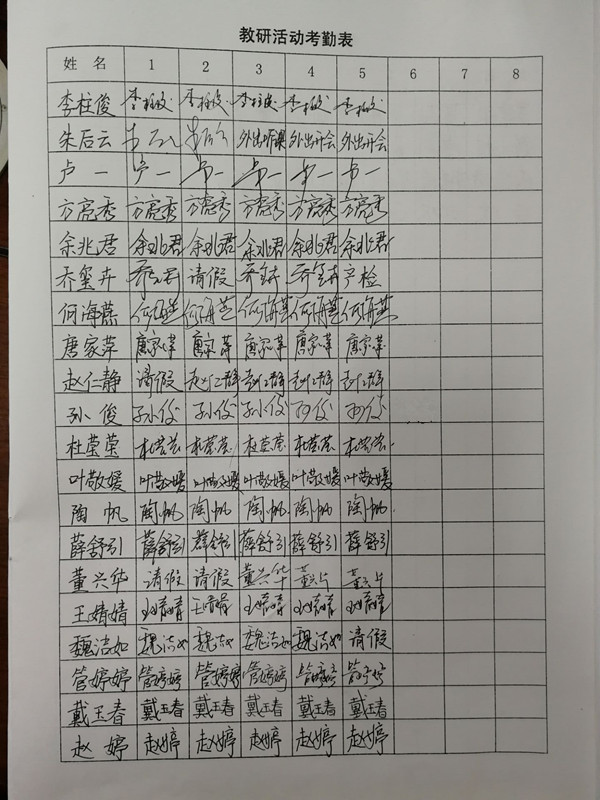 教研活动考勤表
姓 名 1 2 3 4 5 6 7 8
李柱俊 李柱俊 李柱俊 李柱俊 李柱俊 李柱俊
朱后云 朱后云 朱后云 外出听课 外出开会 外出开会
卢一 卢一 卢一 卢一 卢一 卢一
方亮秀 方亮秀 方亮秀 方亮秀 方亮秀 方亮秀
余兆君 余兆君 余兆君 余兆君 余兆君 余兆君
乔玺卉 乔玺卉 请假 乔玺卉 乔玺卉 产检
何海燕 何海燕 何海燕 何海燕 何海燕 何海燕
唐家萍 唐家萍 唐家萍 唐家萍 唐家萍 唐家萍
赵仁静 请假 赵仁静 赵仁静 赵仁静 赵仁静
孙俊 孙俊 孙俊 孙俊 孙俊 孙俊
杜莹莹 杜莹莹 杜莹莹 杜莹莹 杜莹莹 杜莹莹
叶敬媛 叶敬媛 叶敬媛 叶敬媛 叶敬媛 叶敬媛
陶帆 陶帆 陶帆 陶帆 陶帆 陶帆
薛舒引 薛舒引 薛舒引 薛舒引 薛舒引 薛舒引
董兴华 请假 请假 董兴华 董兴华 董兴华
王婧婧 王婧婧 王婧婧 王婧婧 王婧婧 王婧婧
魏洁如 魏洁如 魏洁如 魏洁如 魏洁如 请假
管婷婷 管婷婷 管婷婷 管婷婷 管婷婷 管婷婷
戴玉春 戴玉春 戴玉春 戴玉春 戴玉春 戴玉春
赵婷 赵婷 赵婷 赵婷 赵婷 赵婷